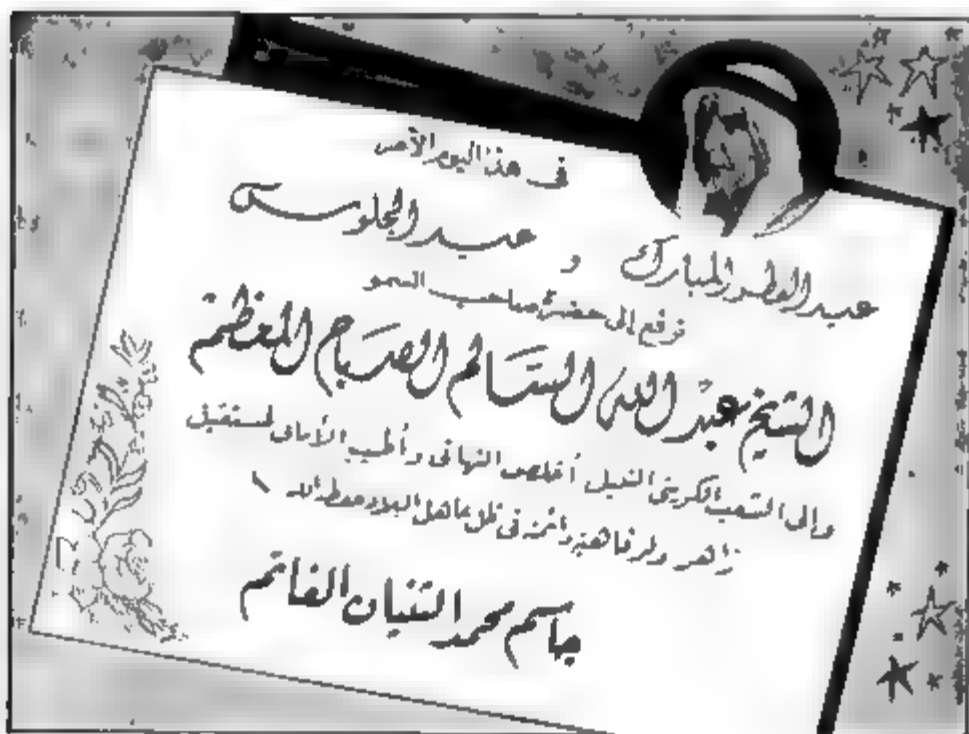 في هذا اليوم الأغر
عيد الفطر المبارك و عيد الجلوس
نرفع إلى حضرة صاحب السمو
الشيخ عبد الله السالم الصباح المعظم
وإلى الشعب الكويتي النبيل أخلص التهاني وأطيب الأماني لمستقبل
زاهر ولرفاهية دائمة في ظل عاهل البلاد حفظه الله
جاسم محمد الثنيان الغانم